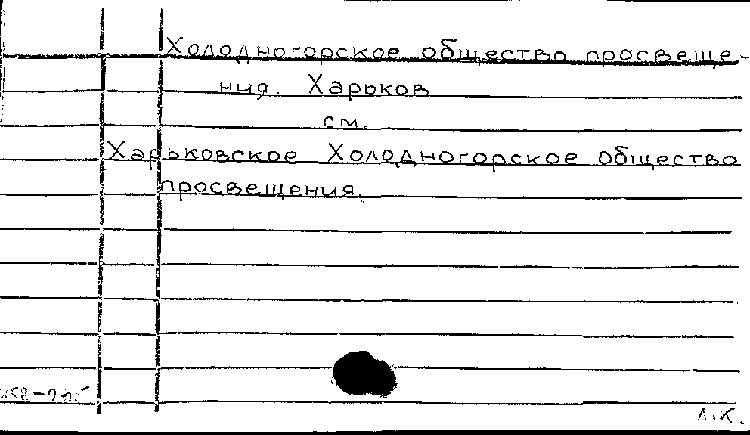 Холодногорское общество просвеще-
ния. Харьков
см.
Харьковское Холодногорское общество
просвещения.
Л.К.